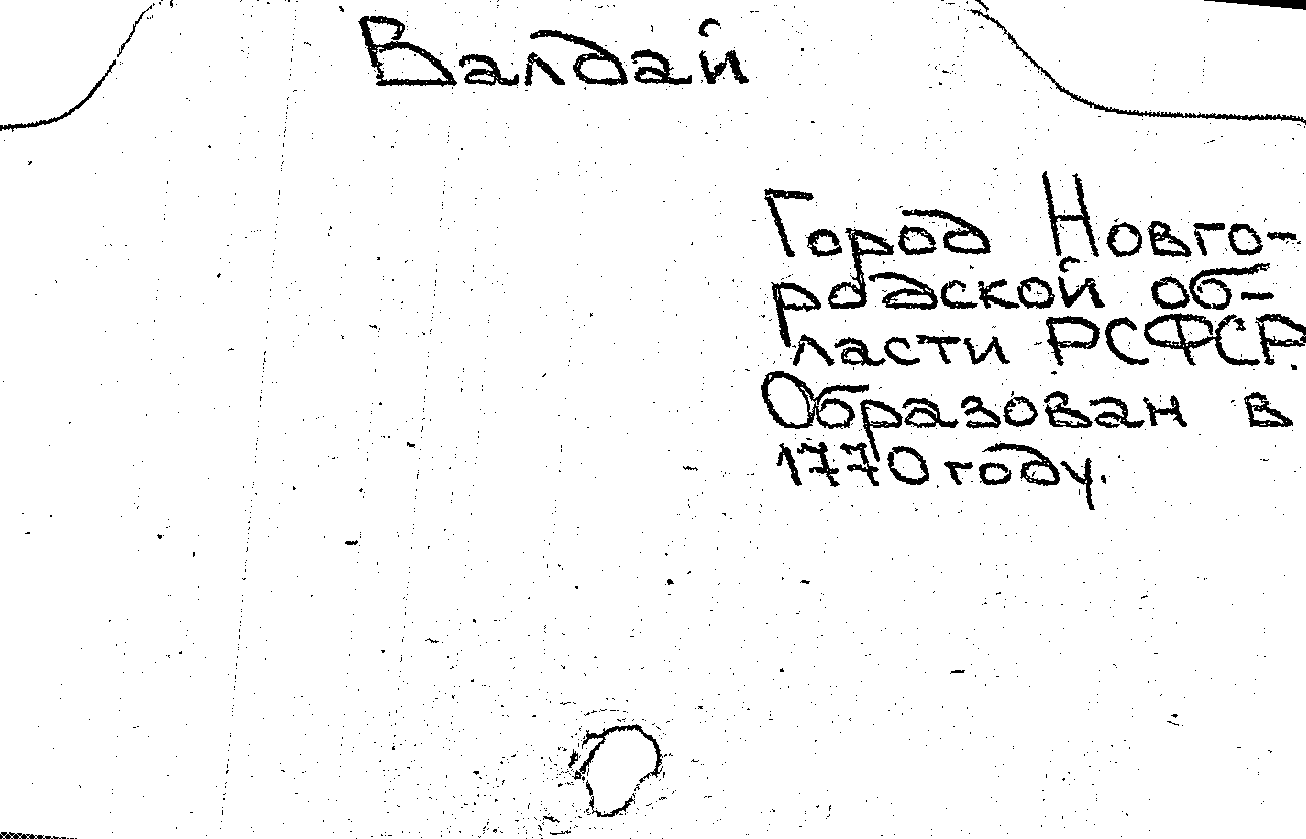 Валдай
Город Новго-
родской об-
ласти РСФСР.
Образован в
1770 году.